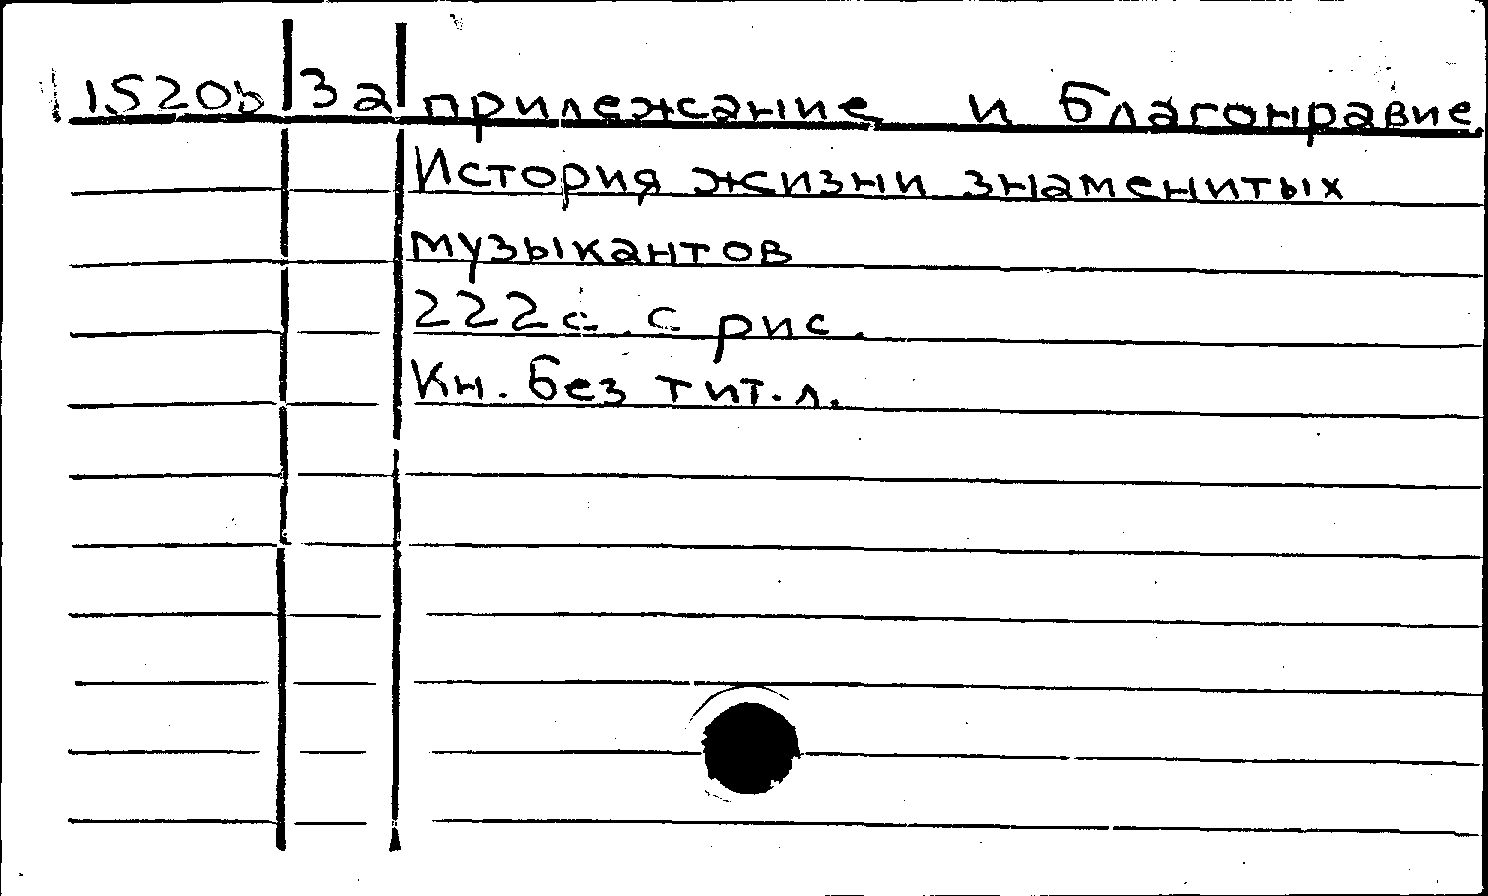 1520ь За прилежание и благонравие
История жизни знаменитых
музыкантов
222с. с рис.
Кн. без тит. л.